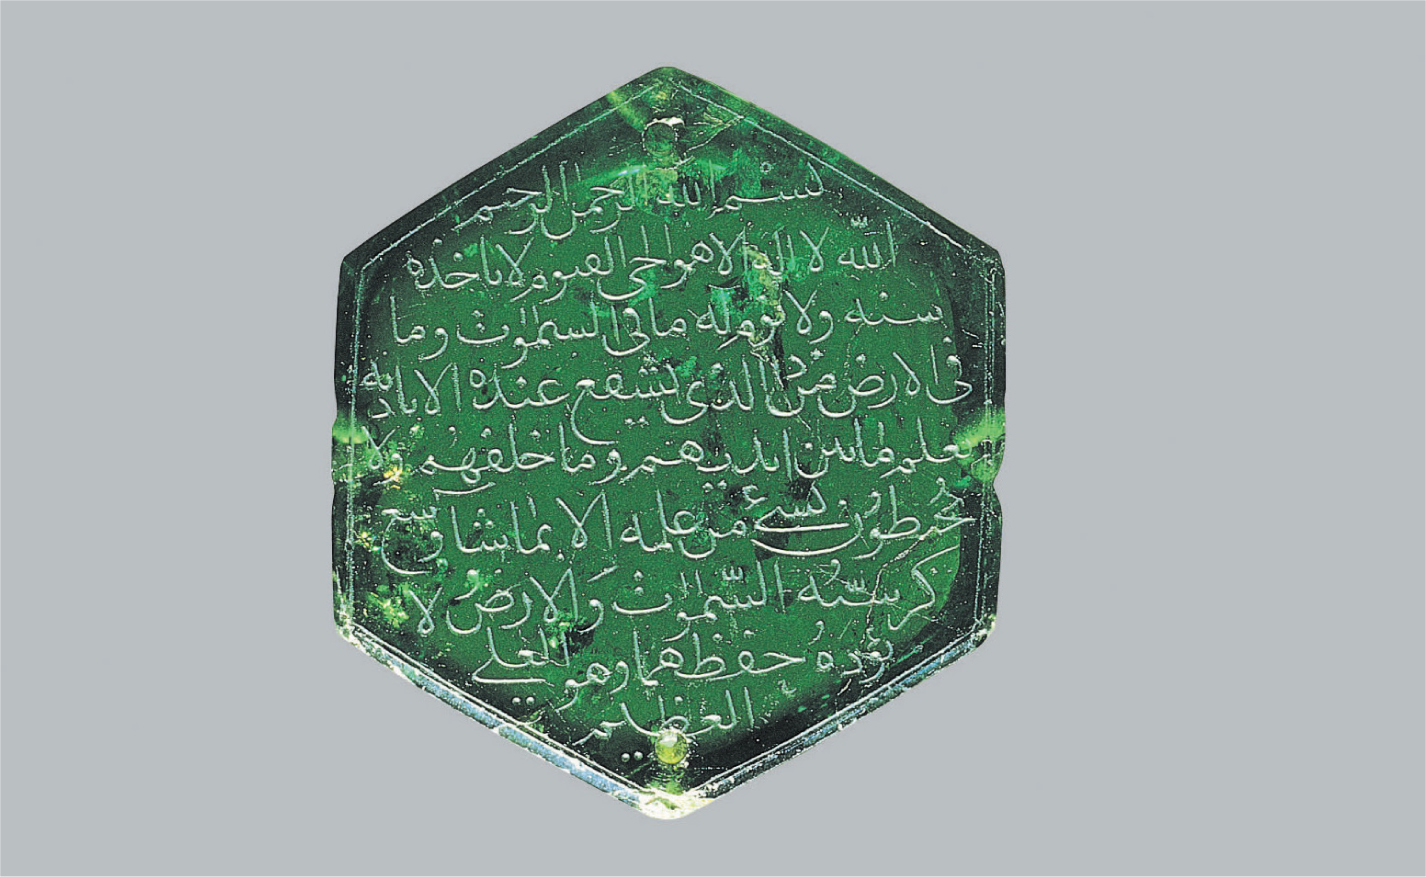 بسم الله الرحمن الرحيم
الله لا اله الا هو الحي القيوم لا تاخذه
سنه ولا نوم له ما في السموت وما
في الارض من ذ الذي يشفع عنده الا باذنه
يعلم ما بين ايديهم وما خلفهم ولا
يحيطون بشيء من علمه الا بما شا وسع
كرسيه السموات والارض لا
يؤده حفظهما وهو العلي
العظيم